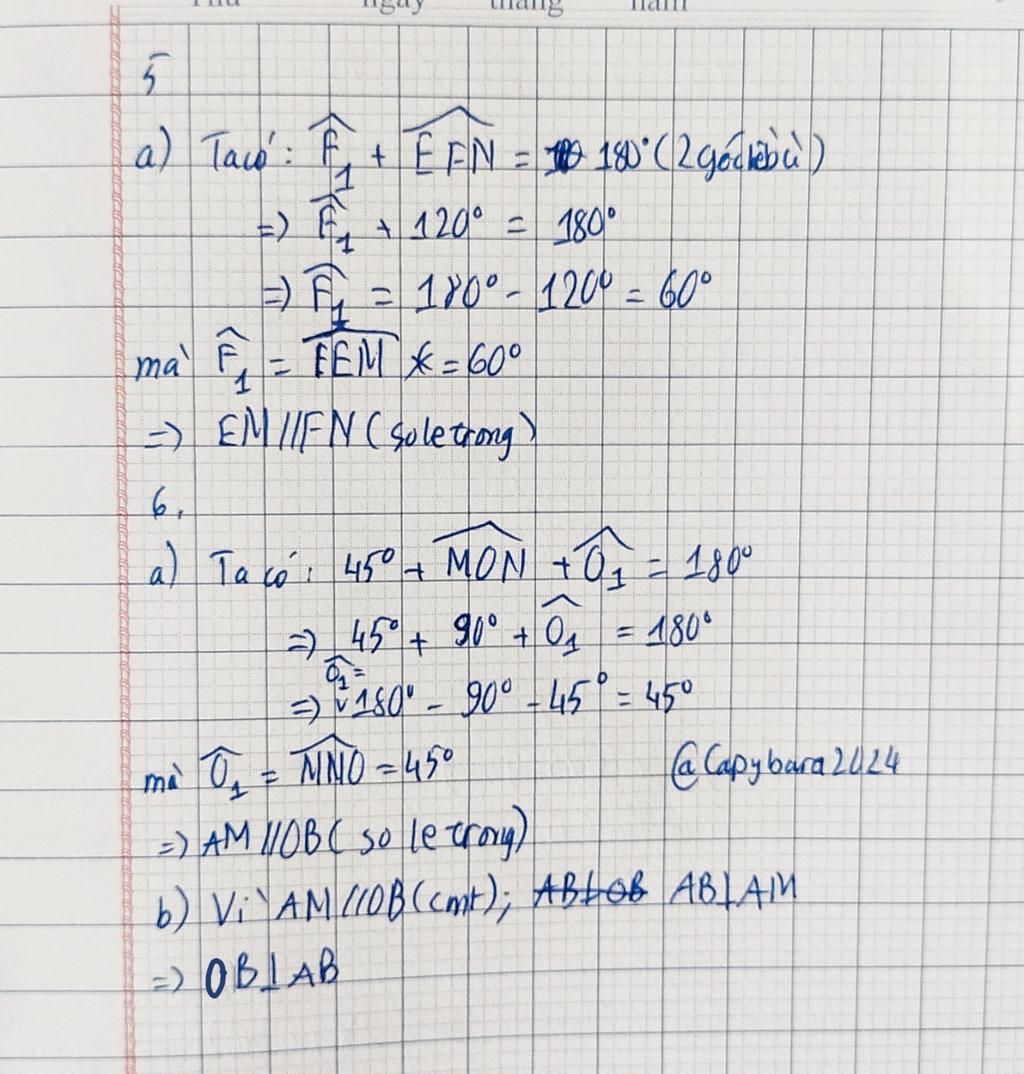 Thứ ngày tháng năm
5
a) Ta có: F̂₁ + EFN̂ = 180° (2 góc kề bù)
=> F̂₁ + 120° = 180°
=> F̂₁ = 180° - 120° = 60°
mà F̂₁ = FEM̂ = 60°
=> EM//FN (so le trong)
6.
a) Ta có: 45° + MON̂ + Ô₁ = 180°
=> 45° + 90° + Ô₁ = 180°
=> Ô₁ = 180° - 90° - 45° = 45°
mà Ô₁ = MNÔ = 45°
@Capybara2424
=> AM//OB (so le trong)
b) Vì AM//OB (cmt); AB⊥OB AB⊥AM
=> OB⊥AB